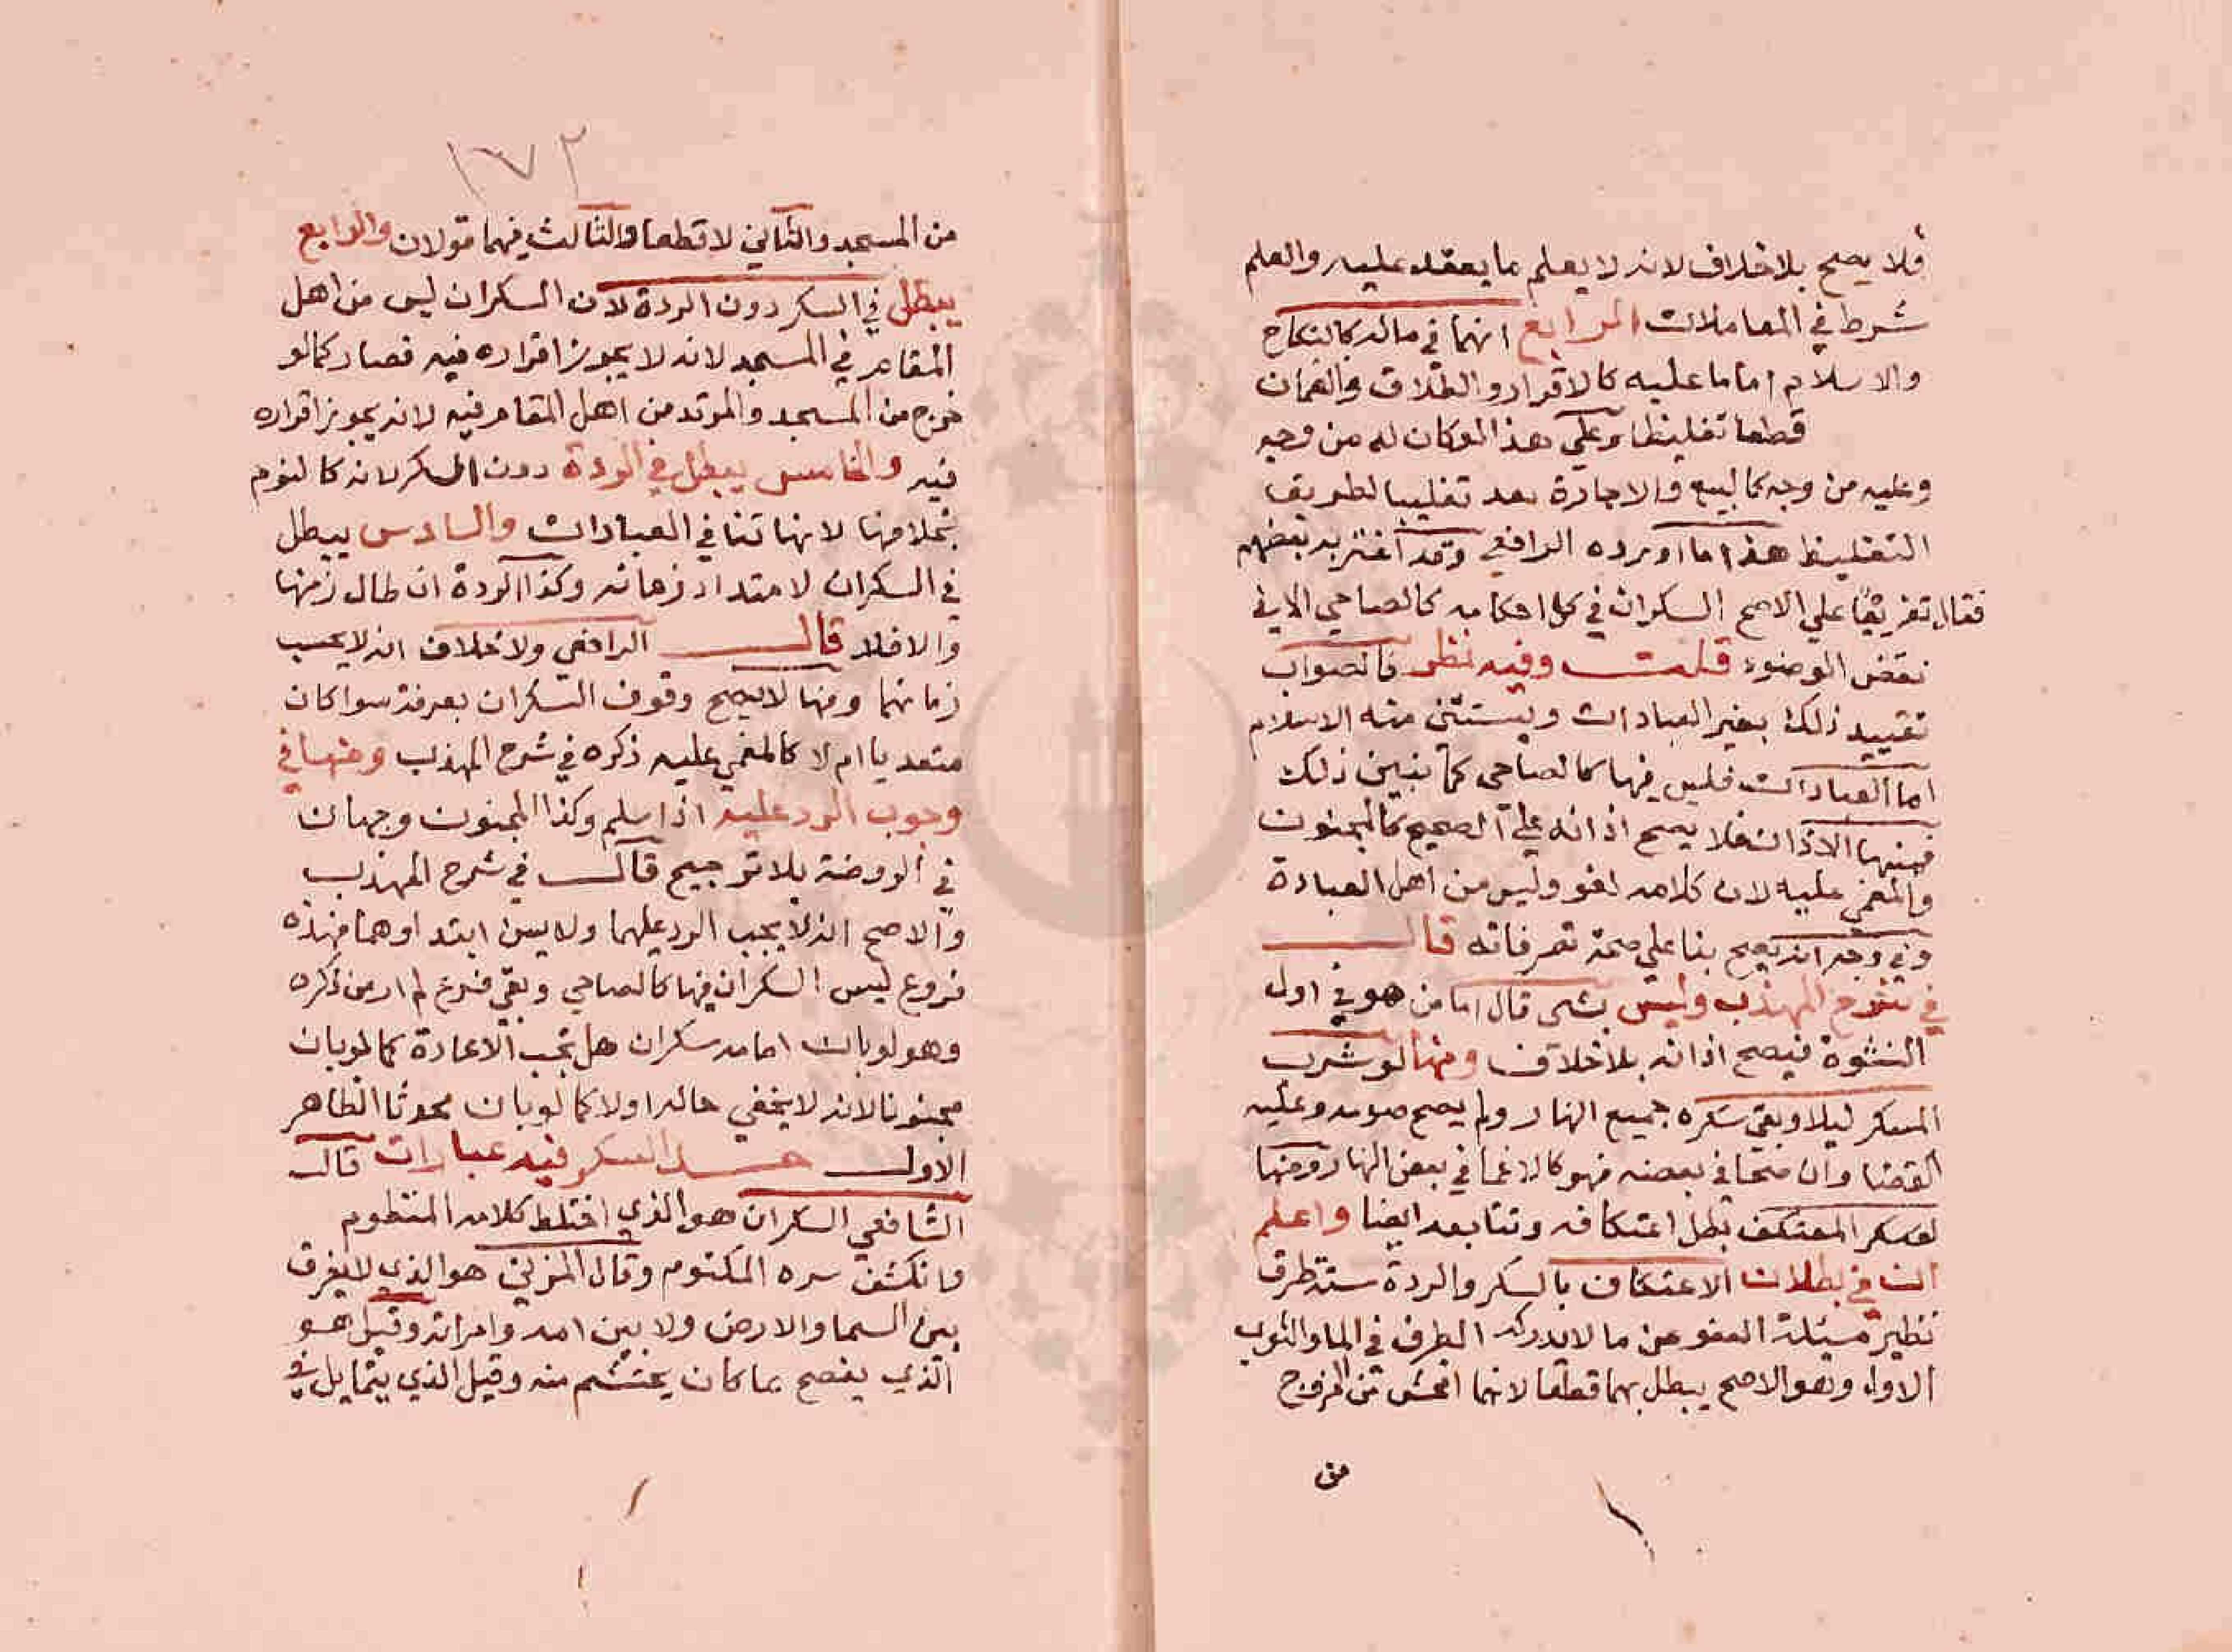 فلا يصح بلا خلاف لانه لا يعلم ما يعقد عليه والعلم
شرط في المعاملات الرابع انهما في ماله كالنكاح
والاسلام اما ما عليه كالاقرار والطلاق والضمان
قطعا تغليظا وعلي هذا لو كان له من وجه
وعليه من وجه كالبيع والاجارة بعد تغليبا لطريق
التغليظ هذا ما اورده الرافعي وقد اغتر به بعضهم
فقال تفريعا علي الاصح السكران في كل احكامه كالصاحي الا في
نقض الوضوء قلت وفيه نظر فالصواب
تقييد ذلك بغير العبادات ويستثني منه الاسلام
اما العبادات فليس فيها كالصاحي كما نبين ذلك
فمنها الاذان فلا يصح اذانه علي الصحيح كالمجنون
والمغمي عليه لان كلامه لغو وليس من اهل العبادة
وفي وجه انه يصح بنا علي صحة تصرفاته قال
في شرح المهذب وليس بشي قال اما من هو في اول
النشوة فيصح اذانه بلا خلاف ومنها لو شرب
المسكر ليلا وبقي سكره جميع النهار ولم يصح صومه وعليه
القضا وان صحا في بعضه فهو كالاغما في بعض النهار ومنها
لو سكر المعتكف بطل اعتكافه وتتابعه ايضا واعلم
ان في بطلان الاعتكاف بالسكر والردة ستة طرق
نظير مسئلة العفو عن ما لا يدركه الطرف في الما والثوب
الاول وهو الاصح يبطل بهما قطعا لانهما افحش من الخروج
من
١٧٢
من المسجد والثاني لا قطعا والثالث فيهما قولان والرابع
يبطل في السكر دون الردة لان السكران ليس من اهل
المقام في المسجد لانه لا يجوز اقراره فيه فصار كما لو
خرج من المسجد والمرتد من اهل المقام فيه لانه يجوز اقراره
فيه والخامس يبطل في الردة دون السكر لانه كالنوم
بخلافها لانها تنافي العبادات والسادس يبطل
في السكران لامتداد زمانه وكذا الردة ان طال زمنها
والا فلا قال الرافعي ولا خلاف انه لا يحسب
زمانهما ومنها لا يصح وقوف السكران بعرفة سوا كان
متعديا ام لا كالمغمي عليه ذكره في شرح المهذب ومنها في
وجوب الرد عليه اذا سلم وكذا المجنون وجهان
في الروضة بلا ترجيح قال في شرح المهذب
والاصح انه لا يجب الرد عليهما ولا يسن ابتداوهما فهذه
فروع ليس السكران فيها كالصاحي وبقي فرع لم ار من ذكره
وهو لو بان امامه سكران هل تجب الاعادة كما لو بان
مجنونا لانه لا يخفي حاله او لا كما لو بان محدثا الظاهر
الاول حد السكر فيه عبارات قال
الشافعي السكران هو الذي اختلط كلامه المنظوم
وانكشف سره المكتوم وقال المزني هو الذي لا يفرق
بين السما والارض ولا بين امه وامراته وقيل هو
الذي يفصح بما كان يحتشم منه وقيل الذي يتمايل في